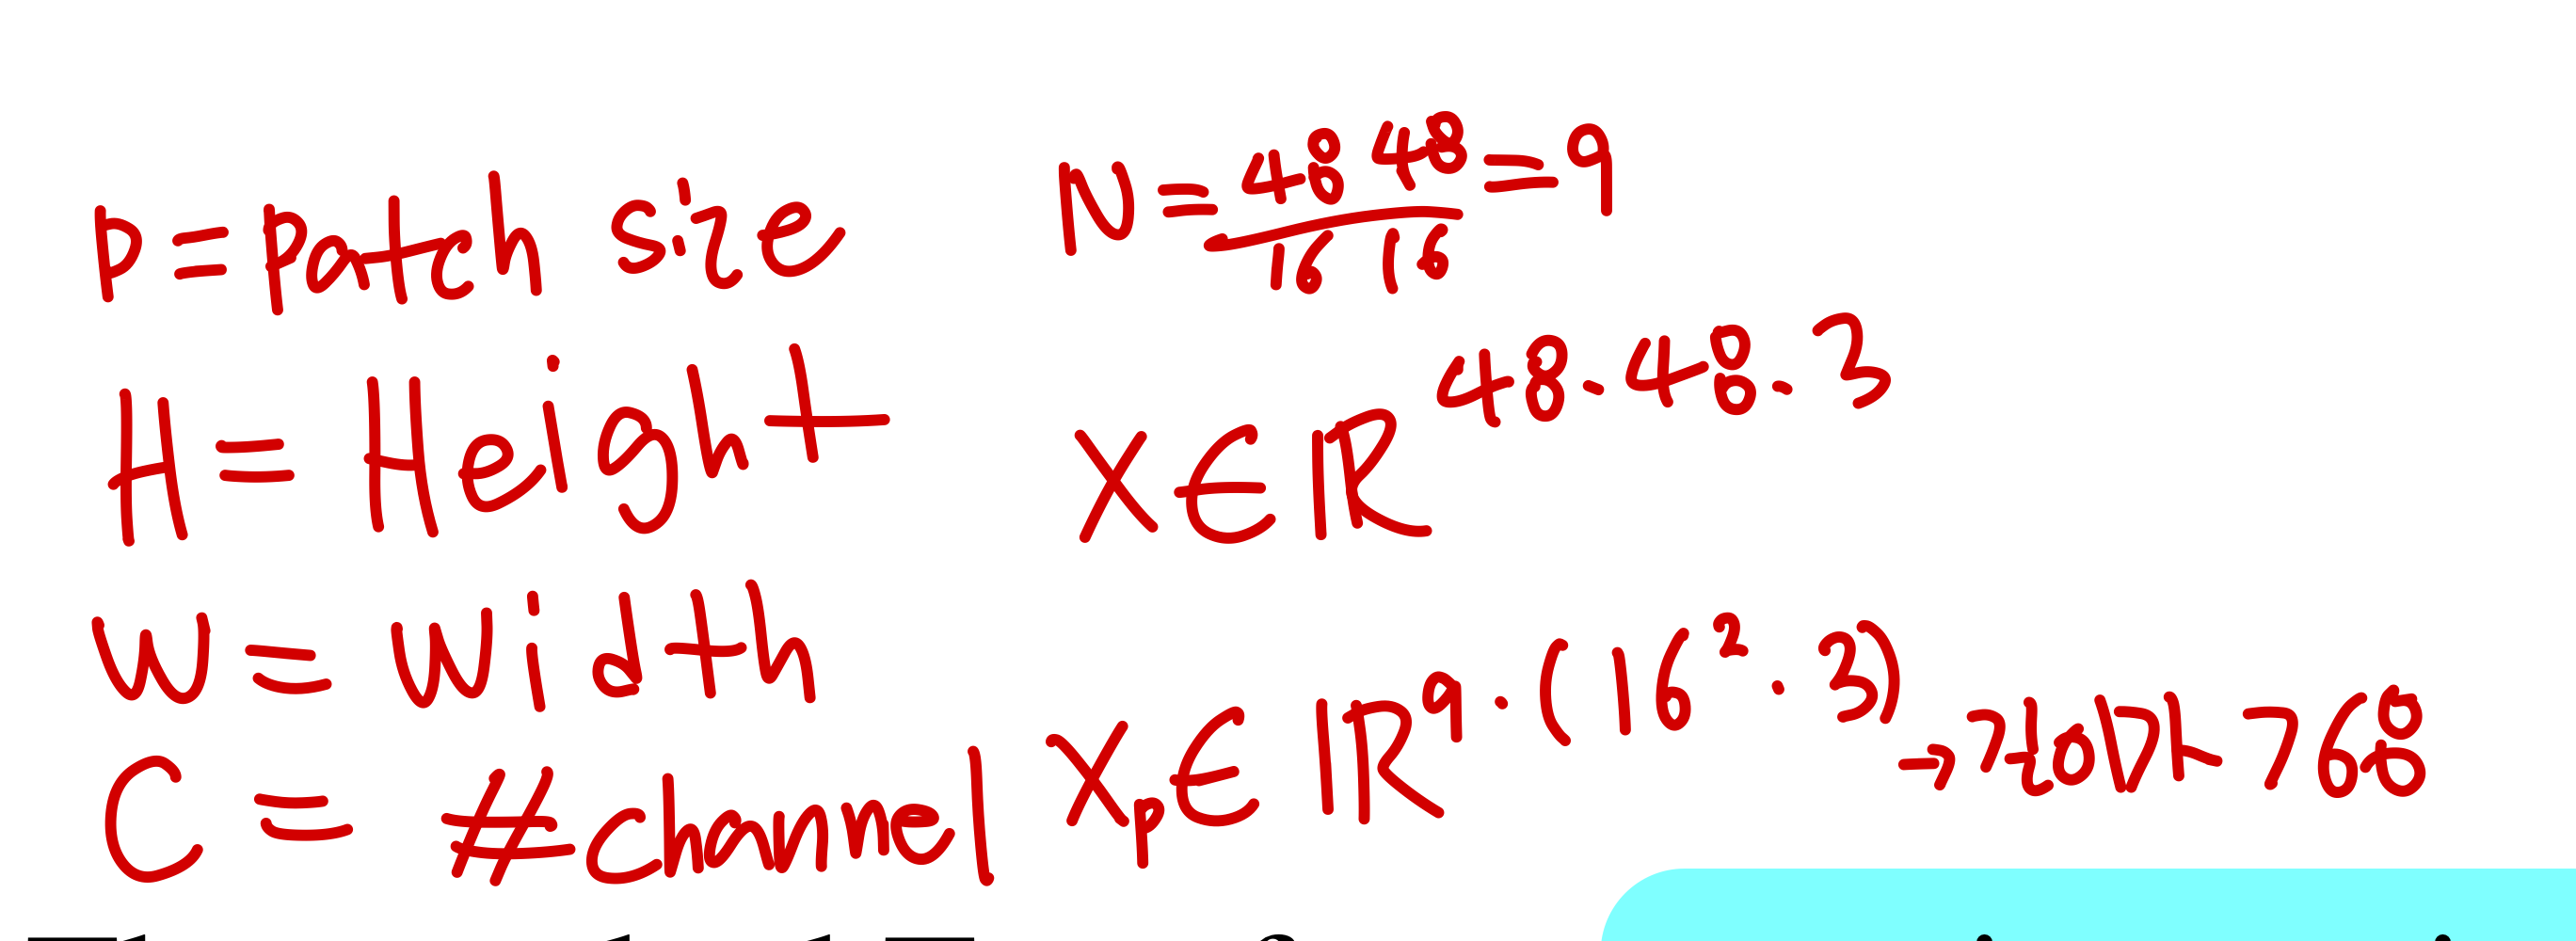 P = patch size
H = Height
W = Width
C = #channel
N = 48 48 / 16 16 = 9
X ∈ ℝ^48·48·3
Xp ∈ ℝ^9·(16²·3) → 길이가 768